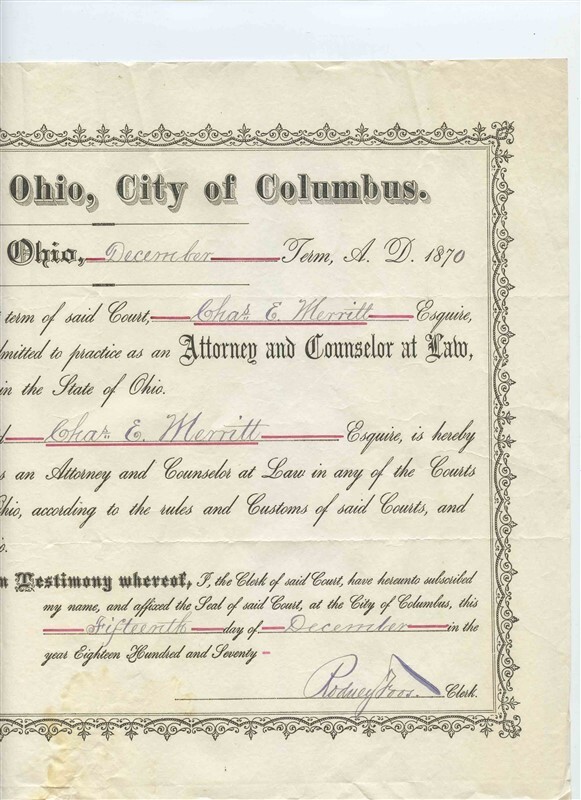 Ohio, City of Columbus.
Ohio, December Term, A. D. 1870
term of said Court, Chas. E. Merritt Esquire,
mitted to practice as an Attorney and Counselor at Law,
in the State of Ohio.
d Chas. E. Merritt Esquire, is hereby
s an Attorney and Counselor at Law in any of the Courts
hio, according to the rules and Customs of said Courts, and
o.
n Testimony whereof, I, the Clerk of said Court, have hereunto subscribed
my name, and affixed the Seal of said Court, at the City of Columbus, this
Fifteenth day of December in the
year Eighteen Hundred and Seventy
Rodney Foos. Clerk.